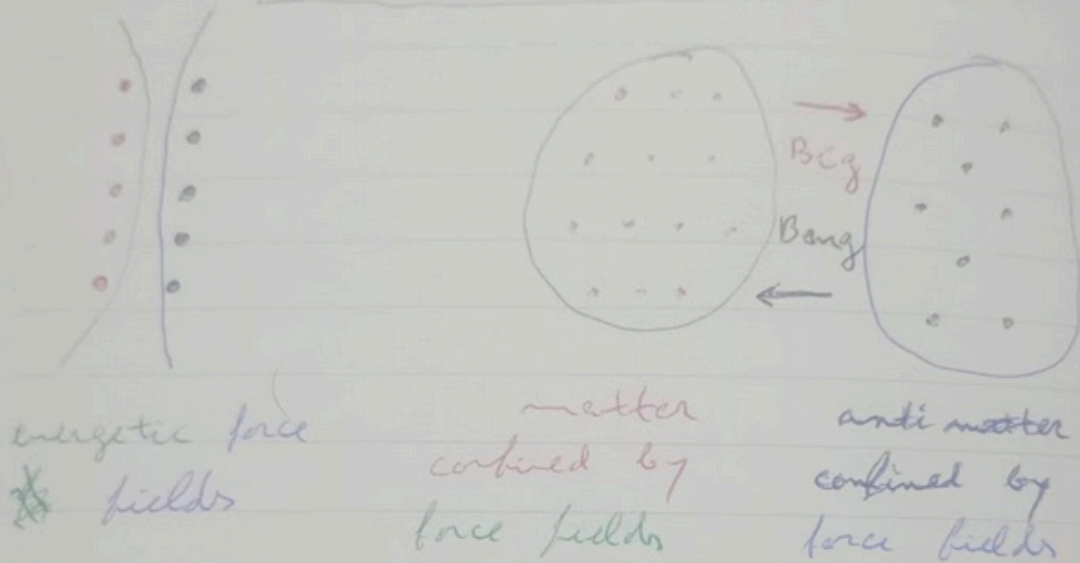 Big
Bang
energetic force
fields
matter
confined by
force fields
anti matter
confined by
force fields